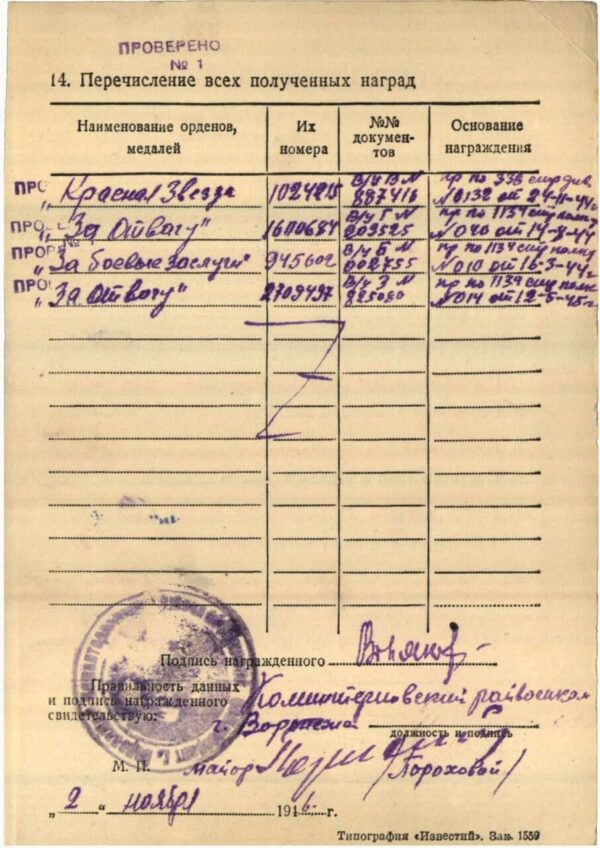 ПРОВЕРЕНО
№ 1
14. Перечисление всех полученных наград
Наименование орденов, медалей
Их номера
№№ документов
Основание награждения
ПРО „Красная Звезда 1024215 В/ч В N 887416 пр по 338 стр див N 0132 от 24-11-44г
ПРОВЕ „За Отвагу" 1600684 В/ч Г N 203525 пр по 1134 стр полку N 020 от 14-8-44
ПРОВЕ „За боевые заслуги" 945602 В/ч Б N 002755 пр по 1134 стр полку N 010 от 16-3-44г
ПРОВ „За Отвагу" 2709497 В/ч З N 225080 пр по 1134 стр полк N 014 от 12-5-45г
Подпись награжденного
Правильность данных
и подпись награжденного
свидетельствую:
Коминтерновский райвоенком
г. Воронежа
должность и подпись
М. П.
майор
/Пороховой/
„ 2 " ноября 1946 г.
Типография «Известий». Зак. 1559